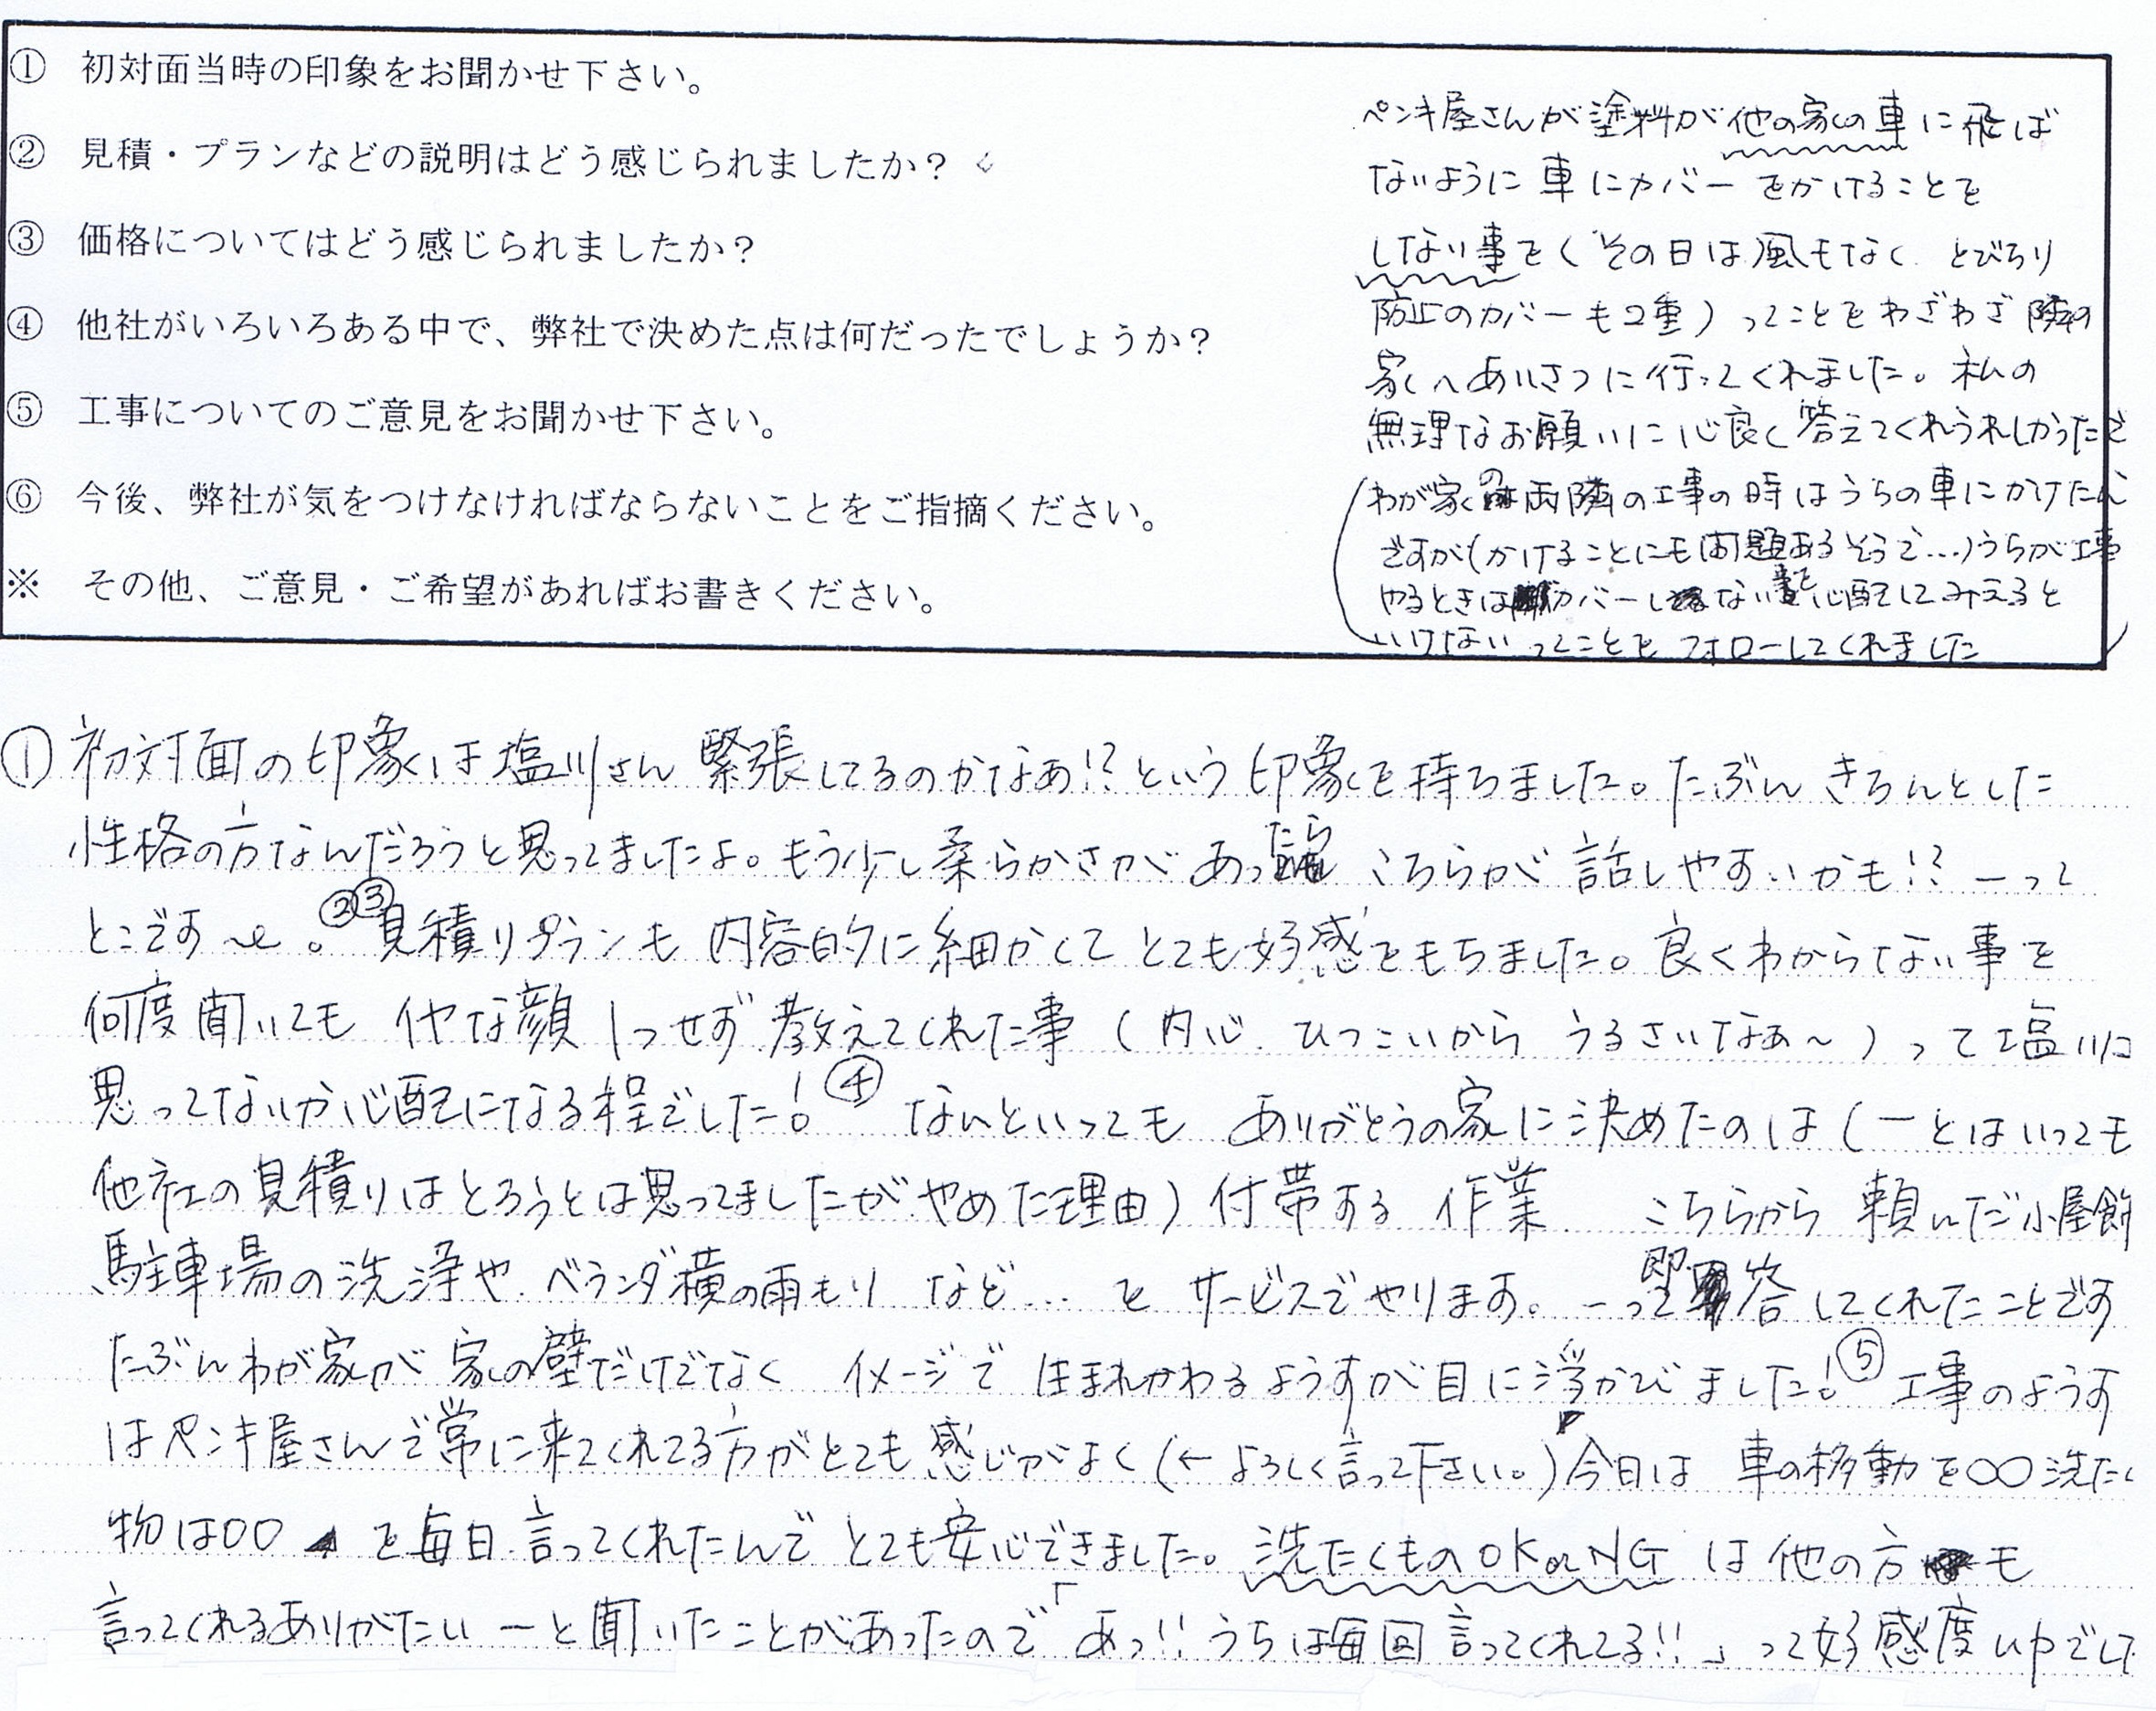 ① 初対面当時の印象をお聞かせ下さい。
② 見積・プランなどの説明はどう感じられましたか？
③ 価格についてはどう感じられましたか？
④ 他社がいろいろある中で、弊社で決めた点は何だったでしょうか？
⑤ 工事についてのご意見をお聞かせ下さい。
⑥ 今後、弊社が気をつけなければならないことをご指摘ください。
※ その他、ご意見・ご希望があればお書きください。
ペンキ屋さんが塗料が他の家の車に飛ば
ないように車にカバーをかけることを
しない事を（その日は風もなく とびちり
防止のカバーも2重）ってことをわざわざ隣の
家へあいさつに行ってくれました。私の
無理なお願いに心良く答えてくれうれしかったデ
（わが家の両隣の工事の時はうちの車にかけたん
ですが（かけることにも問題あるそうで…）うちが工事
やるときはカバーしない事を心配してみえると
いけないってことをフォローしてくれました）
① 初対面の印象は塩川さん緊張してるのかなあ!?という印象を持ちました。たぶんきちんとした
性格の方なんだろうと思ってましたよ。もう少し柔らかさがあったら こちらが話しやすいかも!? ーって
とこです〜。②③見積りプランも内容的に細かくてとても好感をもちました。良くわからない事を
何度聞いても イヤな顔1つせず教えてくれた事（内心 ひつこいから うるさいなぁ〜）って塩川
思ってないか心配になる程でした! ④ なんといっても ありがとうの家に決めたのは（ーとはいっても
他社の見積りはとろうとは思ってましたがやめた理由）付帯する 作業 こちらから頼んだ小屋
駐車場の洗浄や ベランダ横の雨もり など… を サービスでやります。ーって即答してくれたことです
たぶんわが家が家の壁だけでなく イメージで 生まれかわるようすが目に浮かびました! ⑤ 工事のようす
はペンキ屋さんで常に来てくれてる方がとても感じがよく（←よろしく言って下さい。）今日は 車の移動を〇〇洗たく
物は〇〇 を毎日言ってくれたんで とても安心できました。洗たくものOK or NG は他の方も
言ってくれるありがたい ーと聞いたことがあったので「あっ!! うちは毎回言ってくれてる!!」って好感度UPでした